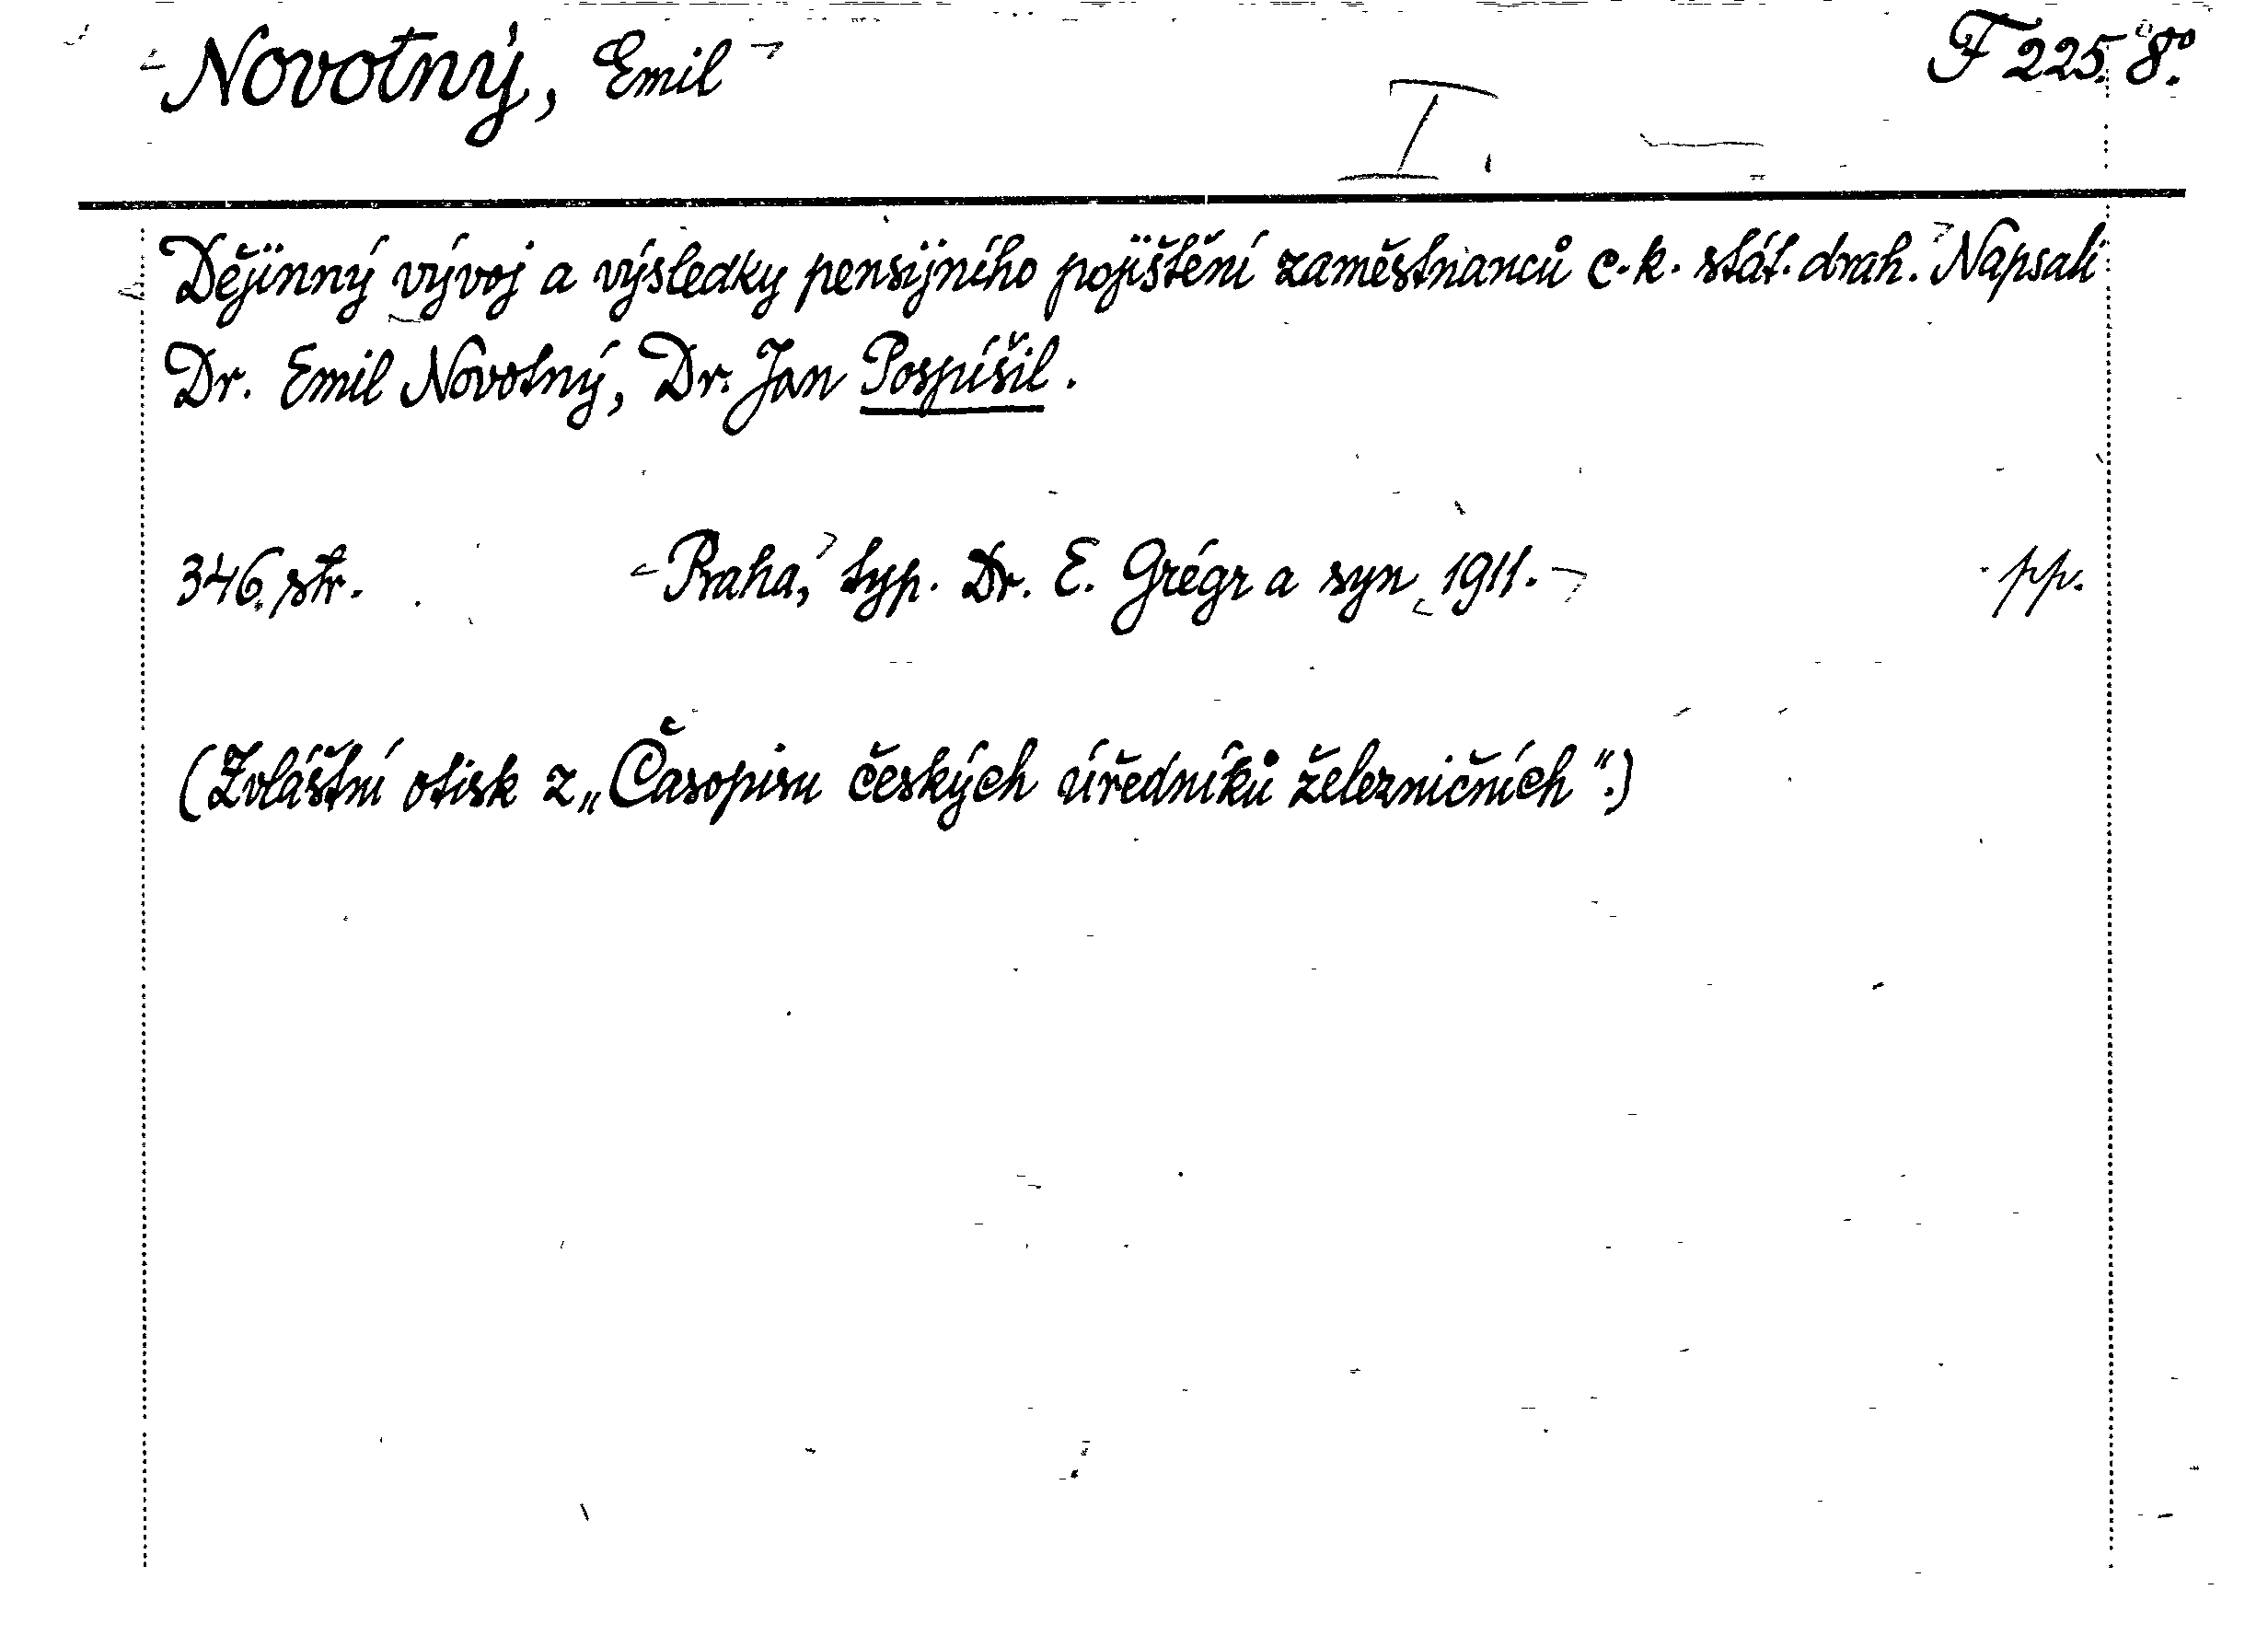 Novotný, Emil F 225. 8°.
I.
Dějinný vývoj a výsledky pensijního pojištění zaměstnanců c. k. stát. drah. Napsali
Dr. Emil Novotný, Dr. Jan Pospíšil.
346 str. Praha, typ. Dr. E. Grégr a syn 1911. pp.
(Zvláštní otisk z „Časopisu českých úředníků železničních“.)